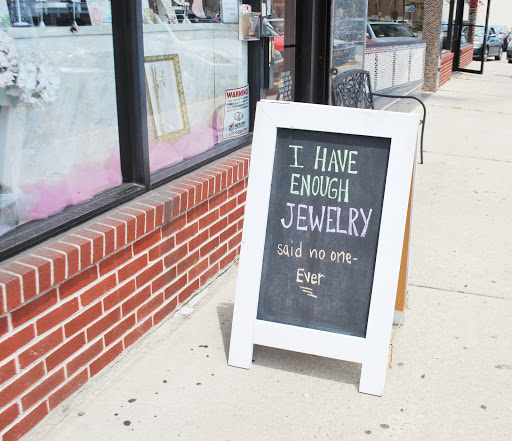 WARNING
I HAVE
ENOUGH
JEWELRY
said no one-
Ever